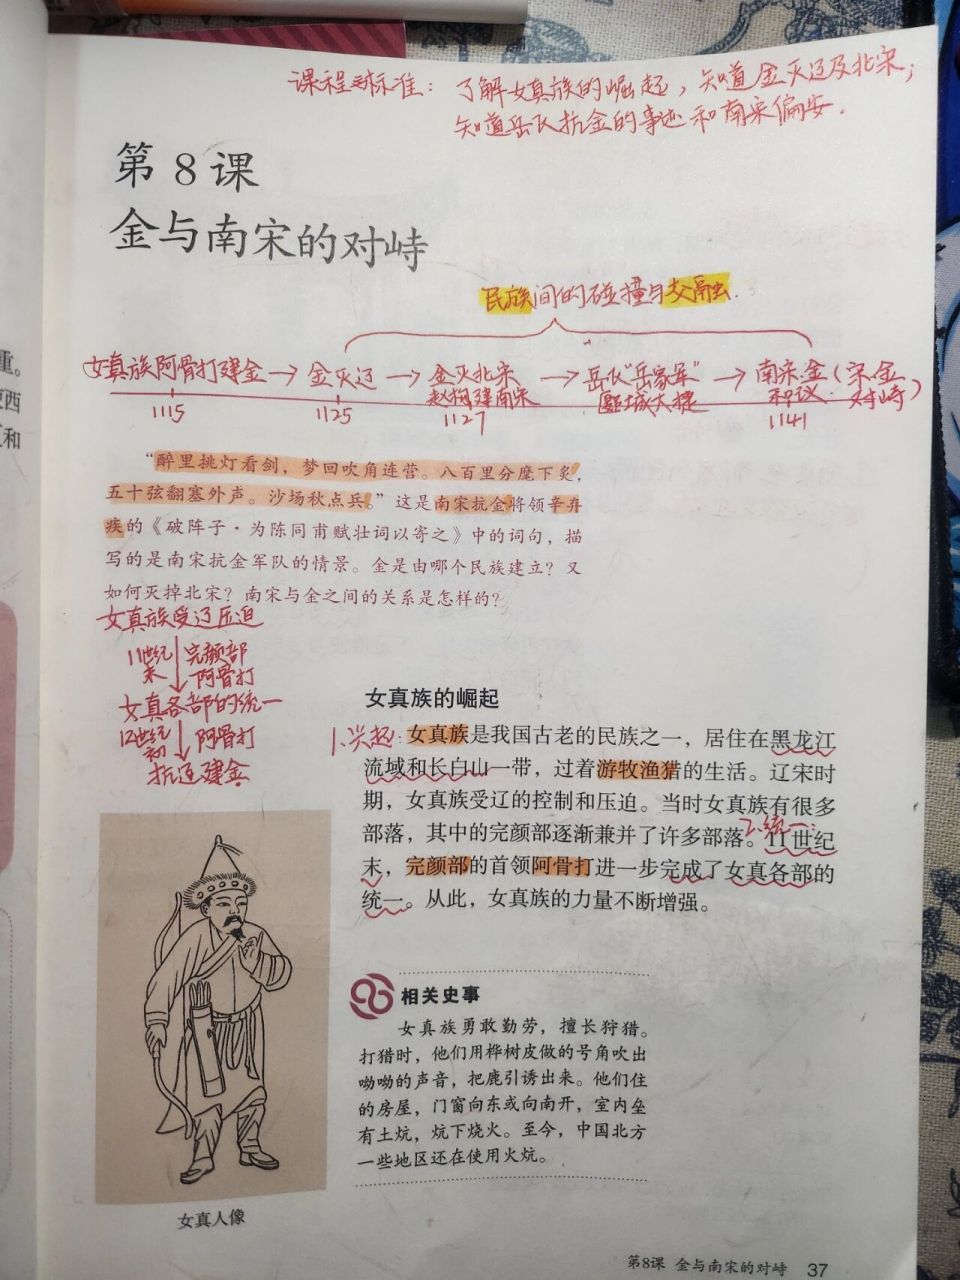 课程标准：了解女真族的崛起，知道金灭辽及北宋；
知道岳飞抗金的事迹和南宋偏安.
第8课
金与南宋的对峙
民族间的碰撞与交融.
女真族阿骨打建金→金灭辽→金灭北宋→岳飞"岳家军"→南宋金(宋金
赵构建南宋 郾城大捷 和议. 对峙)
1115 1125 1127 1141
“醉里挑灯看剑，梦回吹角连营。八百里分麾下炙，
五十弦翻塞外声。沙场秋点兵。”这是南宋抗金将领辛弃
疾的《破阵子·为陈同甫赋壮词以寄之》中的词句，描
写的是南宋抗金军队的情景。金是由哪个民族建立？又
如何灭掉北宋？南宋与金之间的关系是怎样的？
女真族受辽压迫
11世纪 完颜部
末 阿骨打
女真各部的统一
12世纪 阿骨打
初
抗辽建金
女真族的崛起
1.兴起:女真族是我国古老的民族之一，居住在黑龙江
流域和长白山一带，过着游牧渔猎的生活。辽宋时
期，女真族受辽的控制和压迫。当时女真族有很多
部落，其中的完颜部逐渐兼并了许多部落。2.统一:11世纪
末，完颜部的首领阿骨打进一步完成了女真各部的
统一。从此，女真族的力量不断增强。
相关史事
女真族勇敢勤劳，擅长狩猎。
打猎时，他们用桦树皮做的号角吹出
呦呦的声音，把鹿引诱出来。他们住
的房屋，门窗向东或向南开，室内垒
有土炕，炕下烧火。至今，中国北方
一些地区还在使用火炕。
女真人像
第8课 金与南宋的对峙 37
重。
西
和